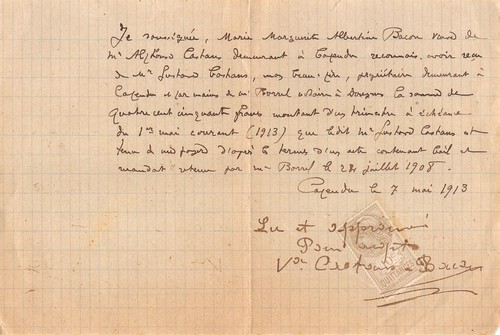 Je soussignée, Marie Marguerite Albertine Bacon veuve de
Mr Alfonse Castans demeurant à Cazendu reconnais avoir reçu
de Mr Gustave Castans, mon beau-père, propriétaire demeurant à
Cazendu et par mains de Mr Borrel notaire à Dourgne la somme de
Quatre cent cinquante francs montant d'un trimestre à échéance
du 1er mai courant (1913) que ledit Mr Gustave Castans est
tenu de me payer d'après les termes d'un acte contenant bail et
mandat retenu par Me Borrel le 24 juillet 1908.
le 7 mai 1913
Lu et approuvé
Pour acquit
Vve Castans née Bacon
QUITTANCES